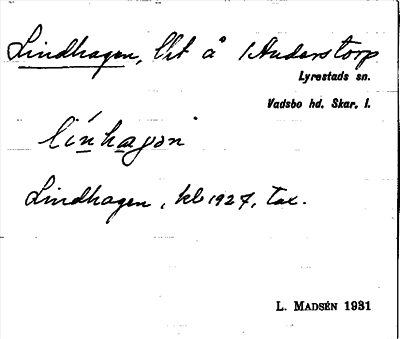 Lindhagen, lht å 1 Anderstorp
Lyrestads sn.
Vadsbo hd. Skar. l.
línhagən
Lindhagen, kl 1927, tax.
L. MADSÉN 1931